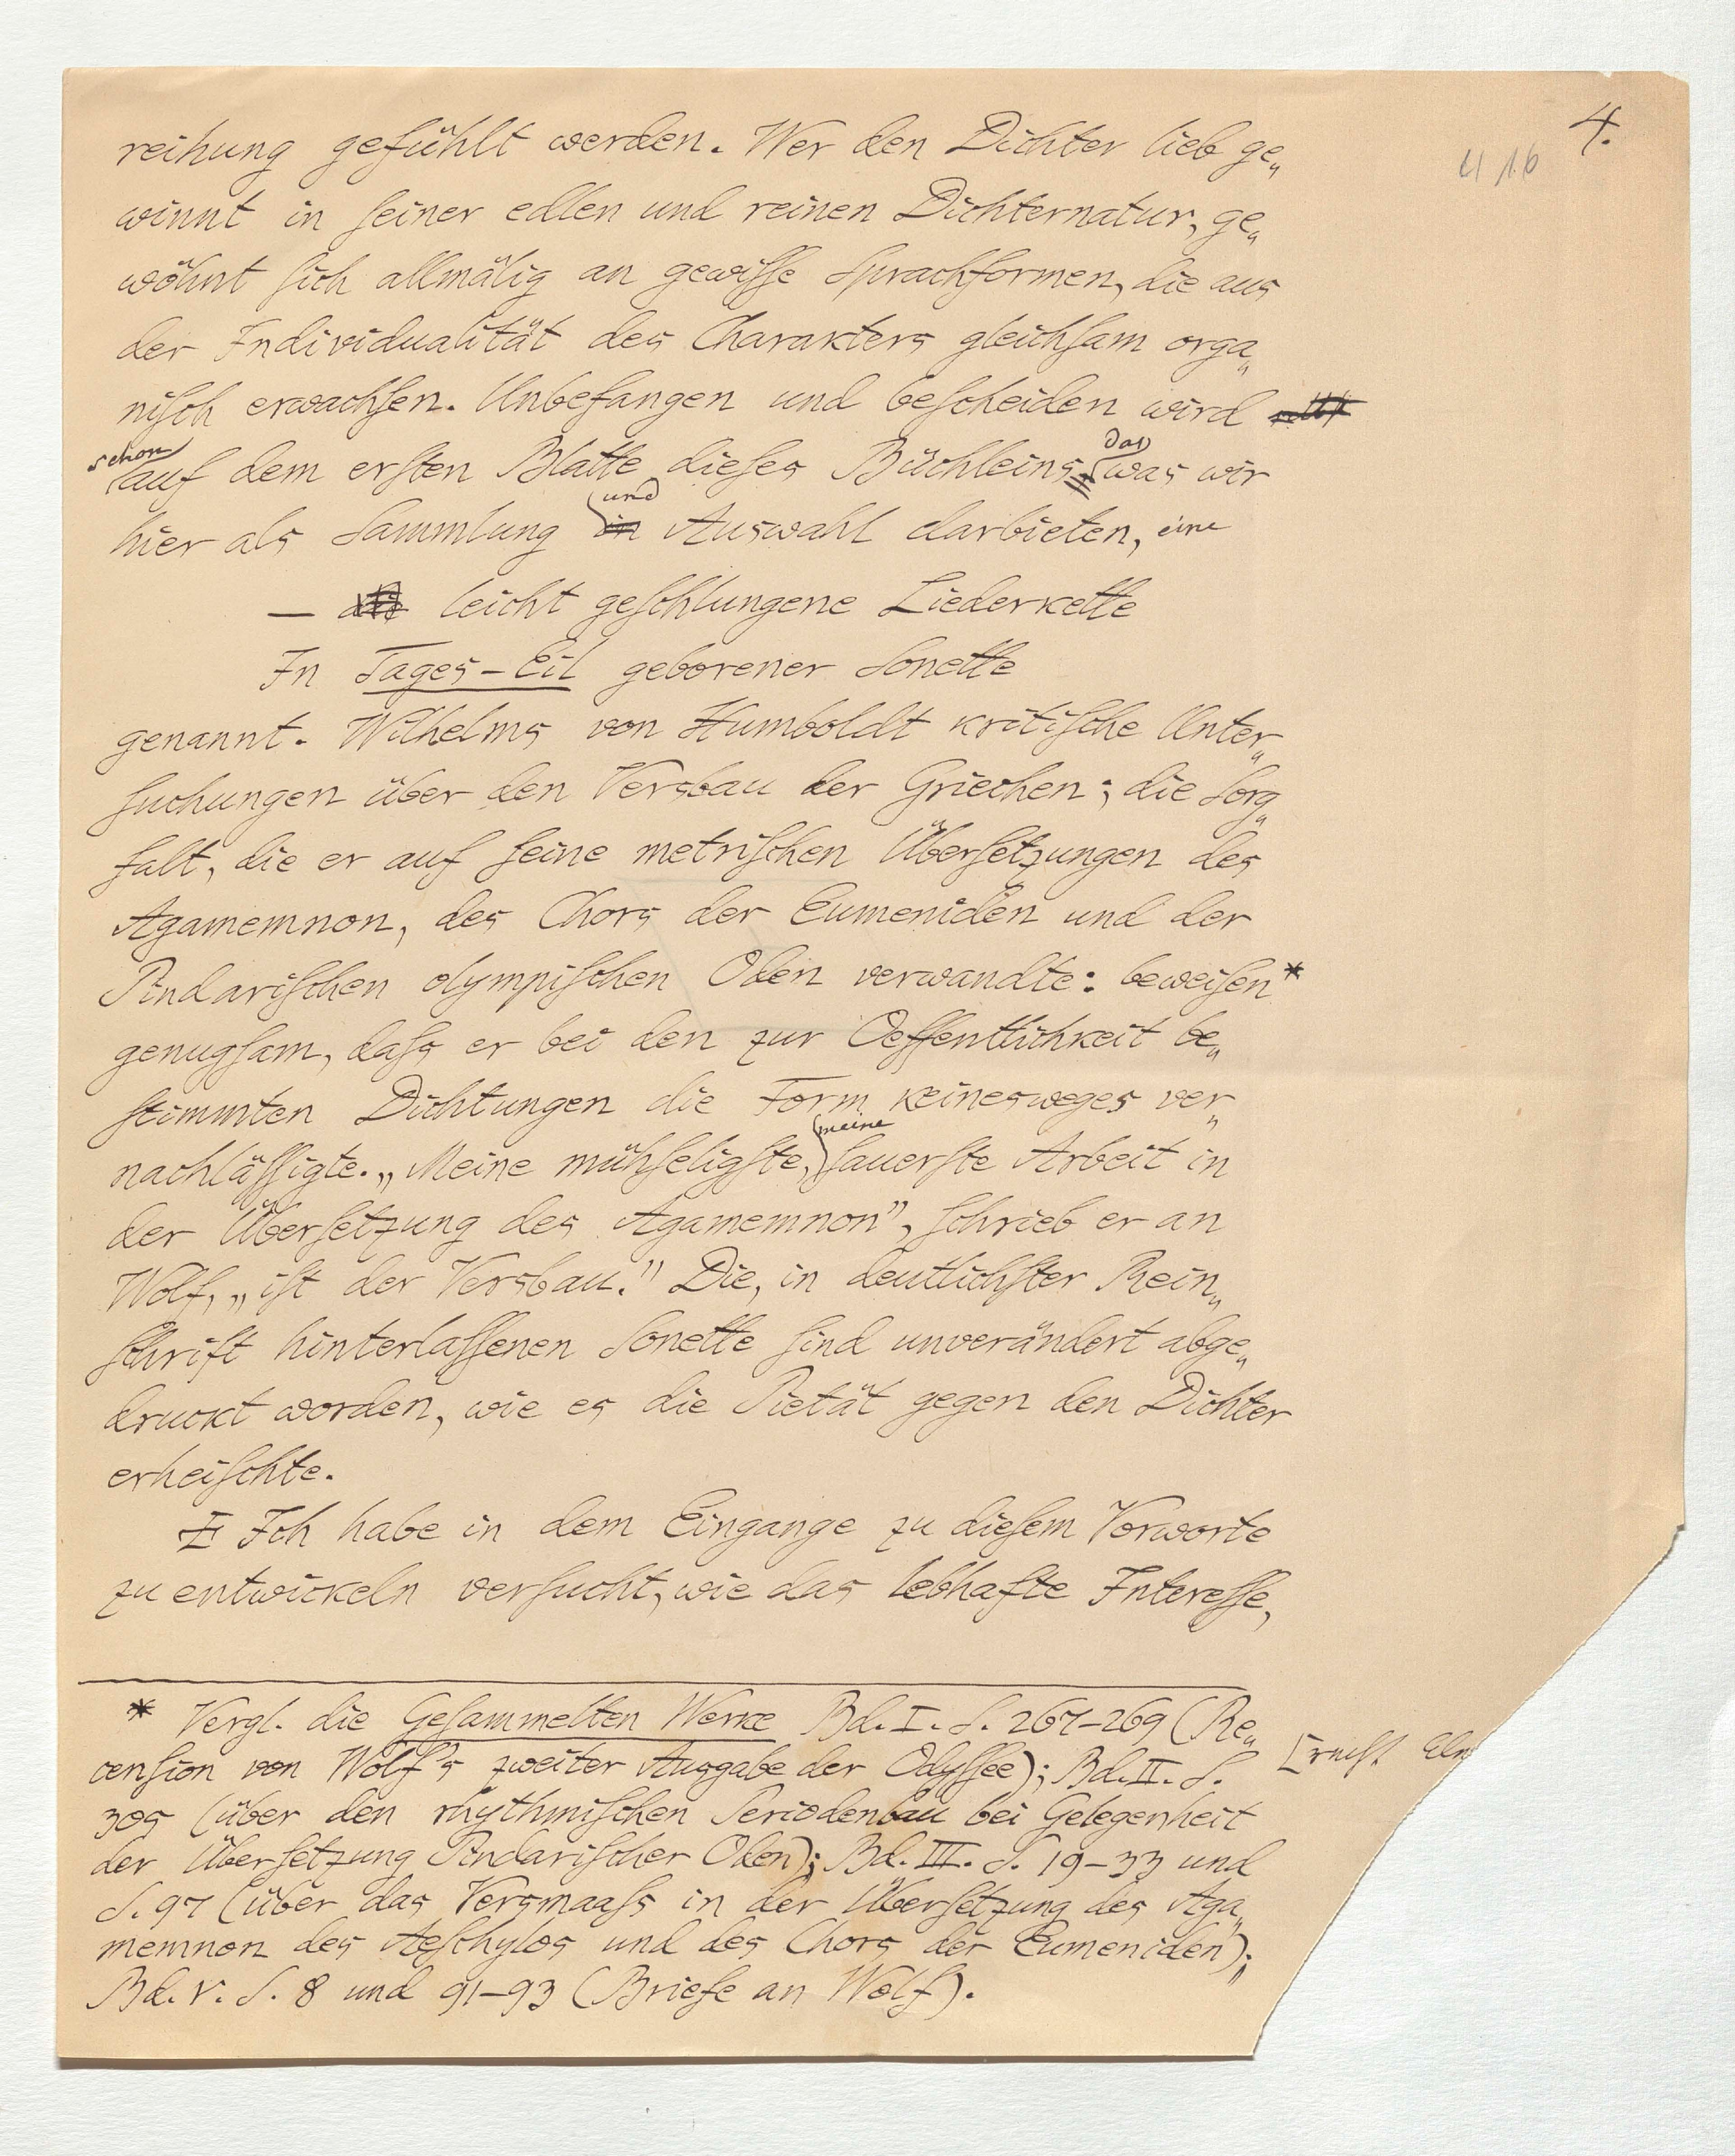 4.
reihung gefühlt werden. Wer den Dichter lieb ge„
winnt in seiner edlen und reinen Dichternatur, ge„
wöhnt sich allmälig an gewisse Sprachformen, die aus
der Individualität des Charakters gleichsam orga„
nisch erwachsen. Unbefangen und bescheiden wird
schon das
auf dem ersten Blatte dieses Büchleins was wir
und
hier als Sammlung in Auswahl darbieten, eine
— leicht geschlungene Liederkette
In Tages-Eil geborener Sonette
genannt. Wilhelms von Humboldt kritische Unter„
suchungen über den Versbau der Griechen; die Sorg„
falt, die er auf seine metrischen Übersetzungen des
Agamemnon, des Chors der Eumeniden und der
Pindarischen olympischen Oden verwandte: beweisen*
genugsam, dass er bei den zur Oeffentlichkeit be„
stimmten Dichtungen die Form keinesweges ver„
meine
nachlässigte. „Meine mühseligste, sauerste Arbeit in
der Übersetzung des Agamemnon", schrieb er an
Wolf, „ist der Versbau." Die, in deutlichster Rein„
schrift hinterlassenen Sonette sind unverändert abge„
druckt worden, wie es die Pietät gegen den Dichter
erheischte.
Ich habe in dem Eingange zu diesem Vorworte
zu entwickeln versucht, wie das lebhafte Interesse,
* Vergl. die Gesammelten Werke Bd. I. S. 267–269 (Re„
cension von Wolf's zweiter Ausgabe der Odyssee); Bd. II. S.
305 (über den rhythmischen Periodenbau bei Gelegenheit
der Übersetzung Pindarischer Oden); Bd. III. S. 19–33 und
S. 97 (über das Versmaass in der Übersetzung des Aga„
memnon des Aeschylos und des Chors der Eumeniden);
Bd. V. S. 8 und 91–93 (Briefe an Wolf).